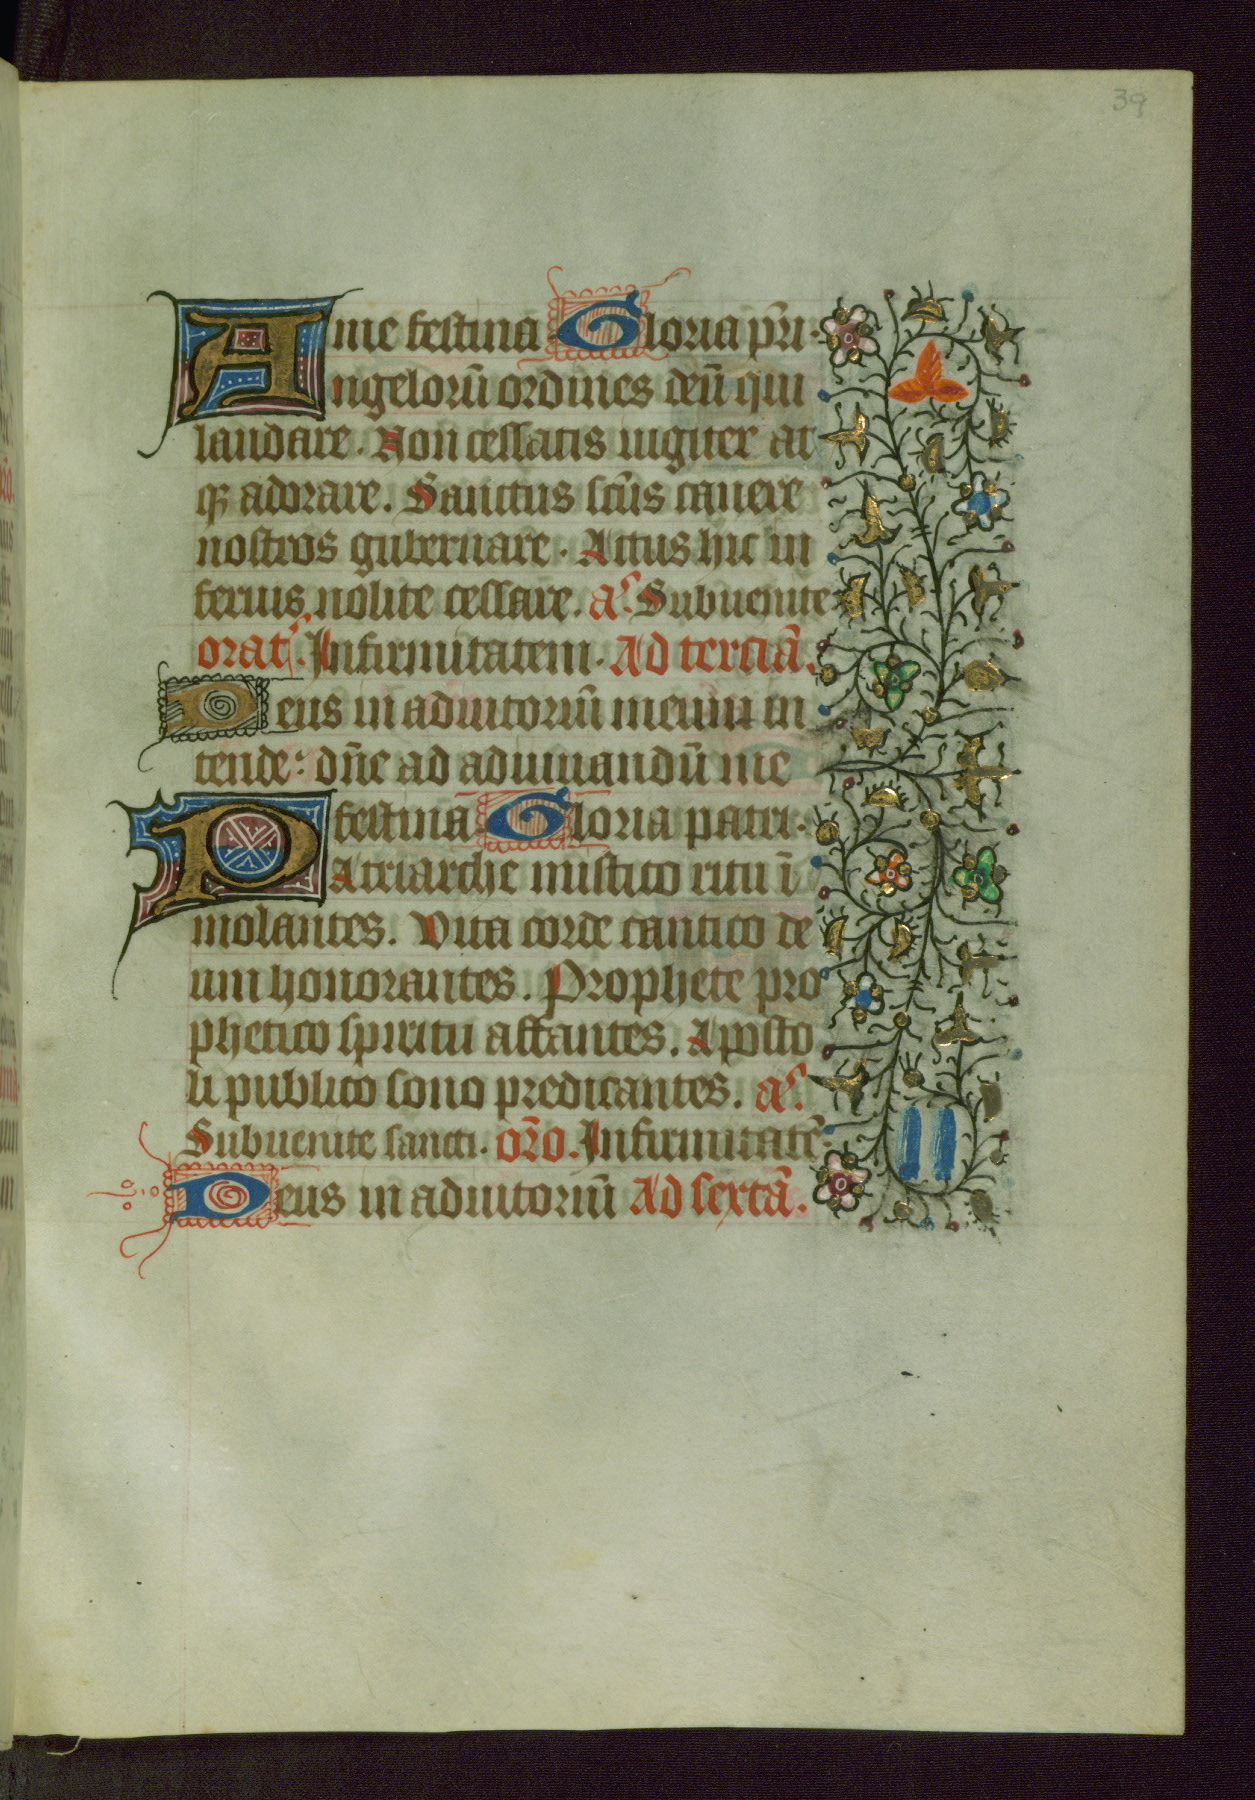 39
me festina Gloria pr̄i·
Angelorū ordines deū qui
laudare. Non cessatis iugiter at
qꝫ adorare. Sanctus sc̄us canere
nostros gubernare. Actus hic in
ferius nolite cessare. aᷤ. Subuenite
orat᷒. Infirmitatem. Ad terciā.
Deus in adiutorium meum in
tende: dn̄e ad adiuuandū me
festina Gloria patri·
Patriarche mistico ritu ī
molantes. Vita corde cantico de
um honorantes. Prophete pro
phetico spiritu affantes. Aposto
li publico sono predicantes. aᷤ.
Subuenite sancti. or̄o. Infirmitatē
Deus in adiutoriū Ad sextā.